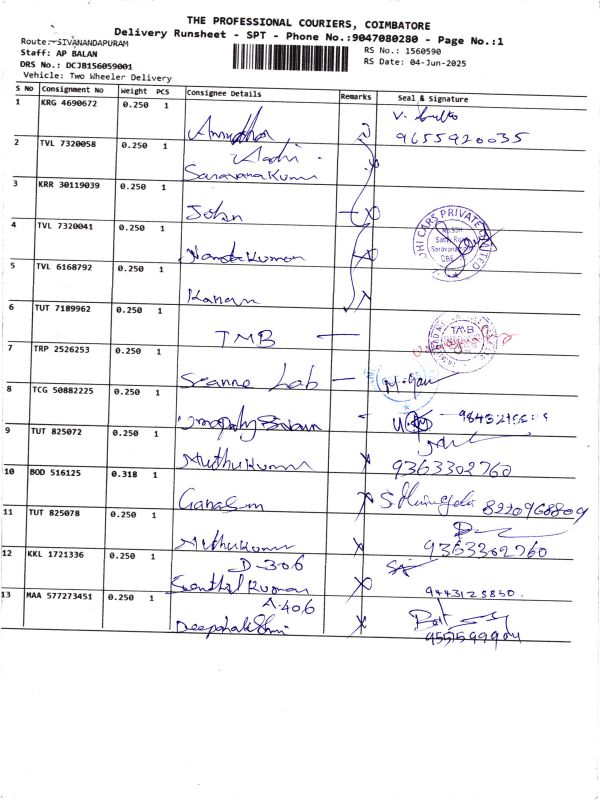 THE PROFESSIONAL COURIERS, COIMBATORE
Delivery Runsheet - SPT - Phone No.:9047080280 - Page No.:1
Route:-SIVANANDAPURAM
RS No.: 1560590
Staff: AP BALAN
RS Date: 04-Jun-2025
DRS No.: DCJB156059001
Vehicle: Two Wheeler Delivery
S No Consignment No Weight PCS Consignee Details Remarks Seal & Signature
1 KRG 4690672 0.250 1
9655920035
2 TVL 7320058 0.250 1
Saravana Kumar
3 KRR 30119039 0.250 1
John
4 TVL 7320041 0.250 1
Nanda Kumar
5 TVL 6168792 0.250 1
Kanan
6 TUT 7189962 0.250 1
TMB
TMB
7 TRP 2526253 0.250 1
Lab
8 TCG 50882225 0.250 1
9 TUT 825072 0.250 1
Muthu Kumar
9363302760
10 BOD 516125 0.318 1
8220968809
11 TUT 825078 0.250 1
Muthu Kumar
9363302760
12 KKL 1721336 0.250 1
D-306
Senthil Kumar
9443125850.
13 MAA 577273451 0.250 1
A.406
Deepalakshmi